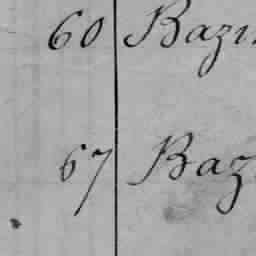 60 Bazin
67 Baz